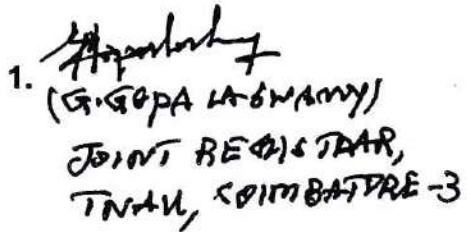 1.
(G. GOPALASWAMY)
JOINT REGISTRAR,
TNAU, COIMBATORE-3